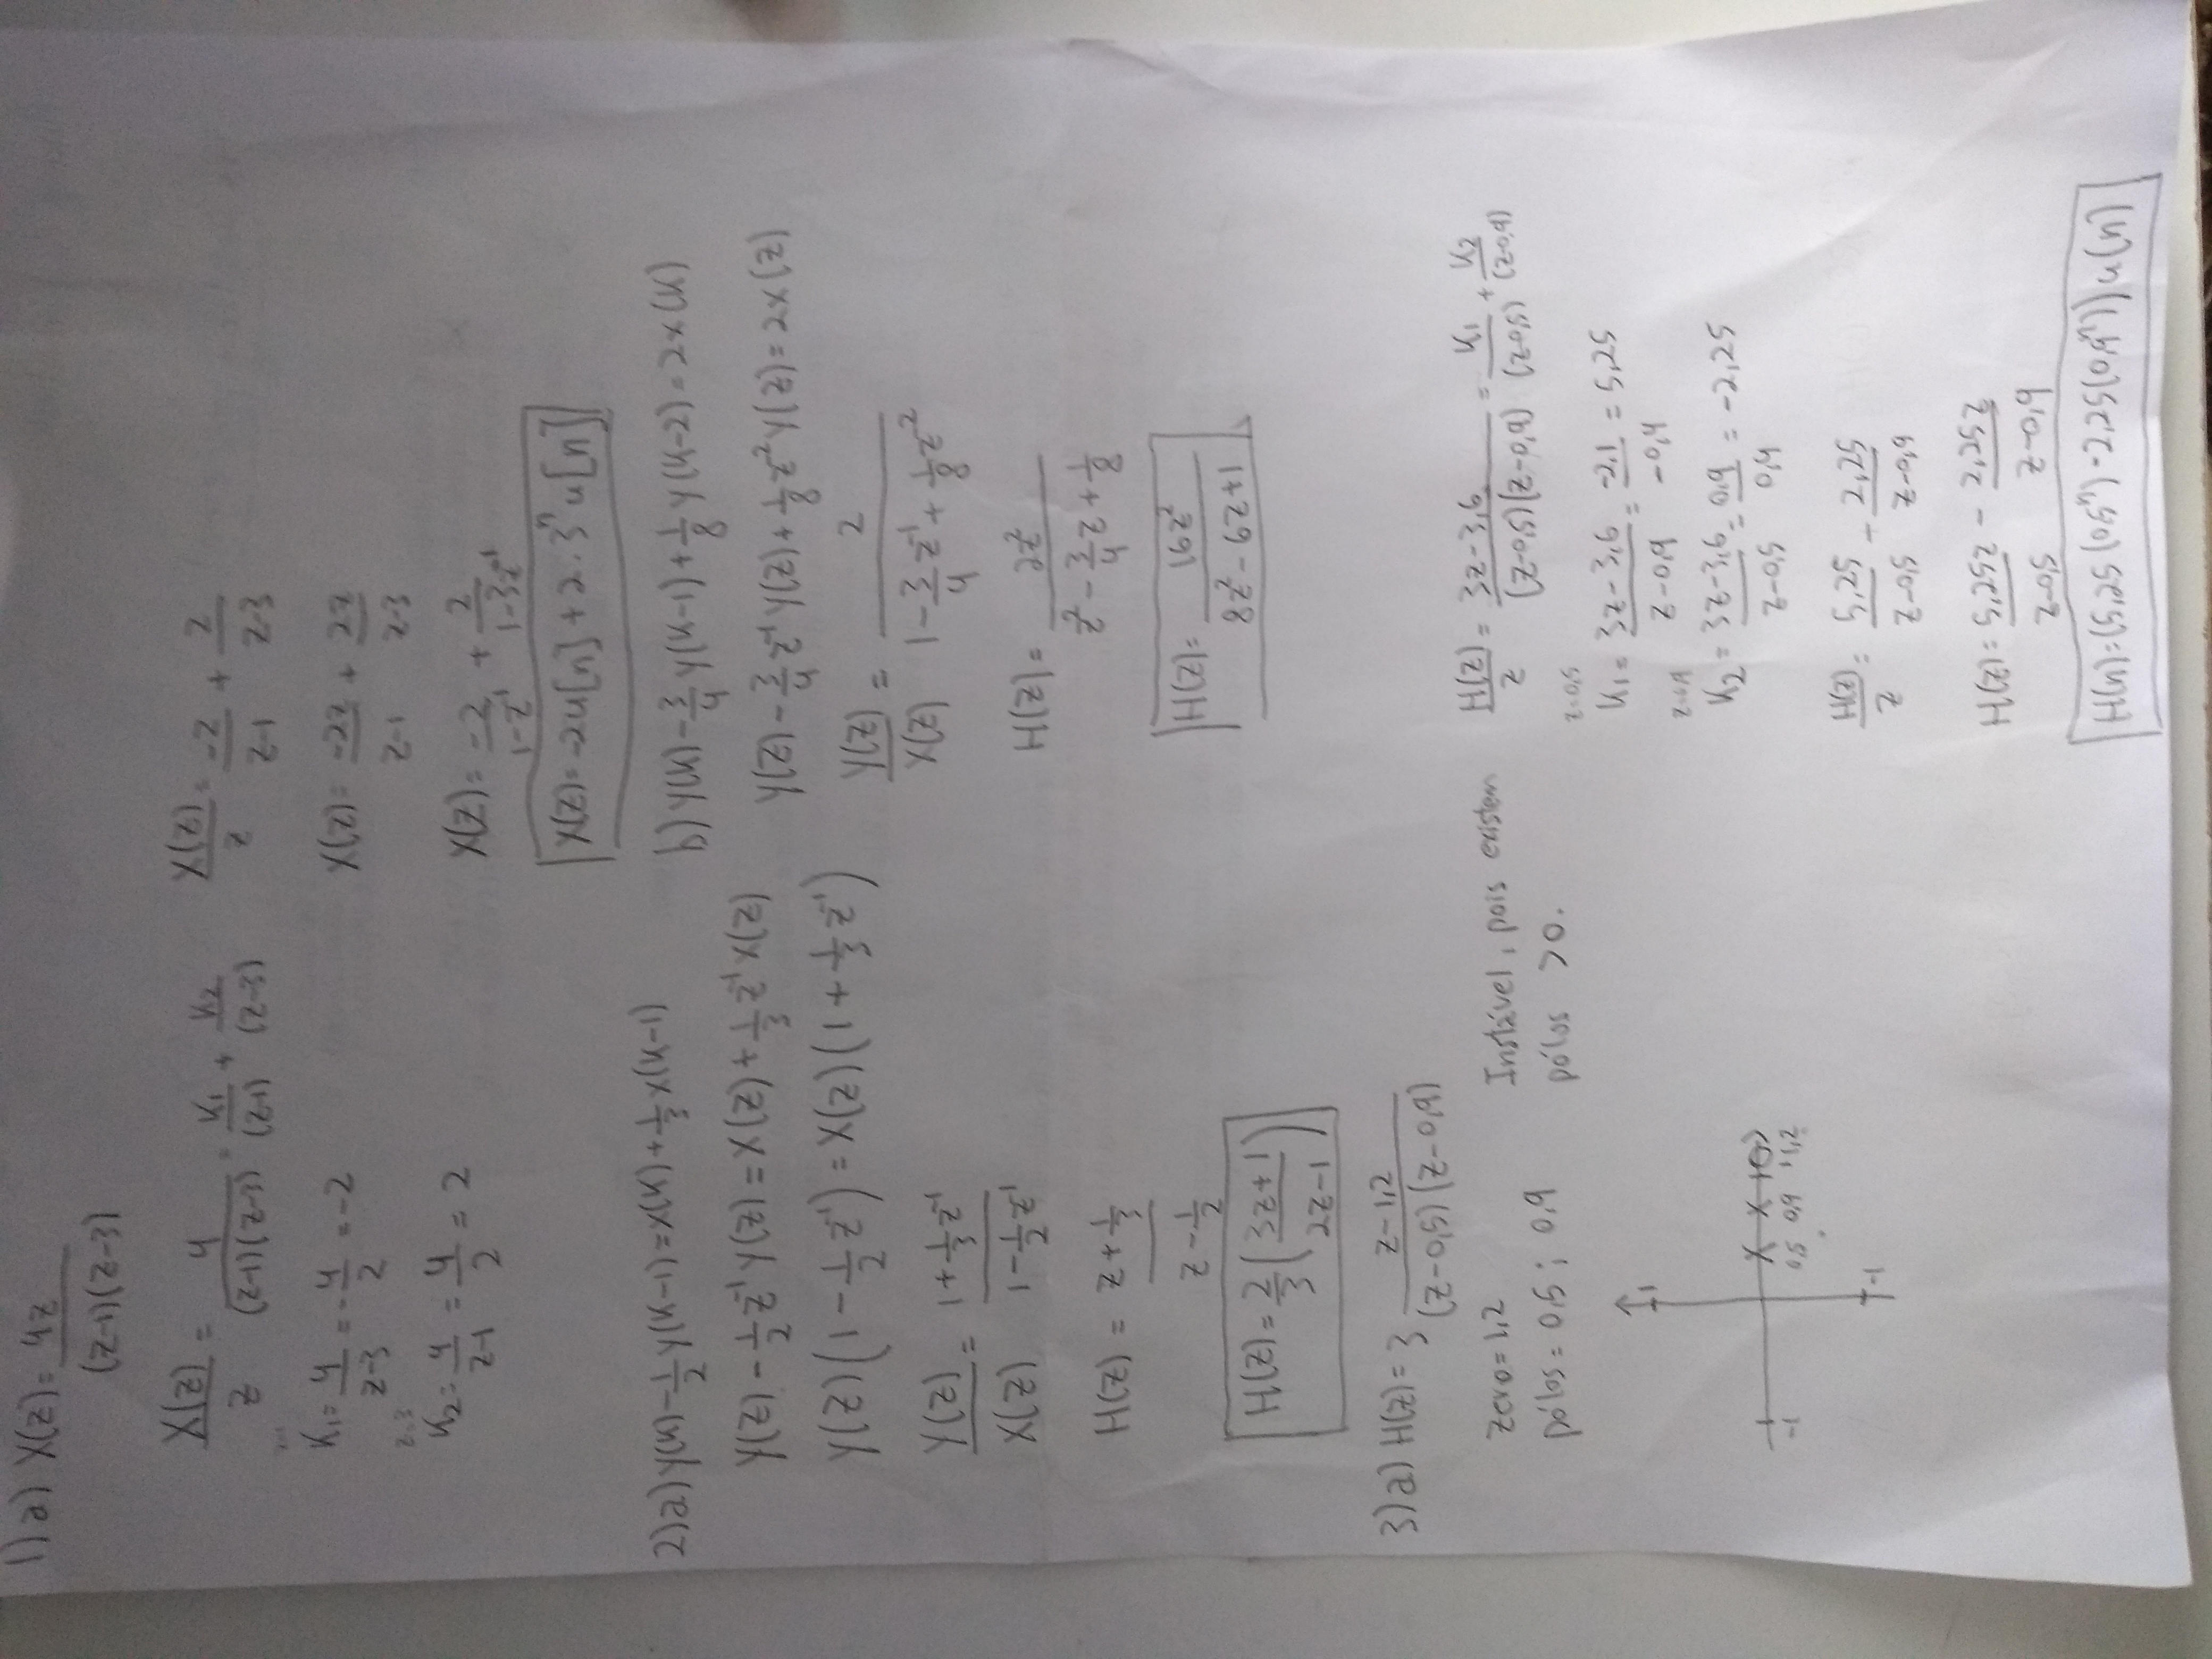 1)a) X(z)= 4z/((z-1)(z-3))
X(z)/z = 4/((z-1)(z-3)) = K₁/(z-1) + K₂/(z-3)
K₁= 4/(z-3) = -4/2 = -2
z=3
K₂= 4/(z-1) = 4/2 = 2
X(z)/z = -2/(z-1) + 2/(z-3)
X(z)= -2z/(z-1) + 2z/(z-3)
X(z)= -2/(1-z⁻¹) + 2/(1-3z⁻¹)
X(z)= -2u[n] + 2.3ⁿ u[n]
2)a) y(k) - 1/2 y(k-1) = x(k) + 1/3 x(k-1)
Y(z) - 1/2 z⁻¹ Y(z) = X(z) + 1/3 z⁻¹ X(z)
Y(z)(1 - 1/2 z⁻¹) = X(z)(1 + 1/3 z⁻¹)
Y(z)/X(z) = (1 + 1/3 z⁻¹)/(1 - 1/2 z⁻¹)
H(z) = (z + 1/3)/(z - 1/2)
H(z) = 2/3 ((3z+1)/(2z-1))
b) y(k) - 3/4 y(k-1) + 1/8 y(k-2) = 2x(k)
Y(z) - 3/4 z⁻¹ Y(z) + 1/8 z⁻² Y(z) = 2X(z)
Y(z)/X(z) = 2/(1 - 3/4 z⁻¹ + 1/8 z⁻²)
H(z) = 2z²/(z² - 3/4 z + 1/8)
H(z) = 16z²/(8z² - 6z + 1)
3)a) H(z) = 3 (z-1,2)/((z-0,5)(z-0,9))
zero = 1,2
pólos = 0,5 ; 0,9
Instável, pois existem
pólos >0.
1
-1
0,5 0,9 1,2
-1
H(z)/z = (3z-3,6)/((z-0,5)(z-0,9)) = K₁/(z-0,5) + K₂/(z-0,9)
z=0,5
K₁ = (3z-3,6)/(z-0,9) = -2,1/-0,4 = 5,25
z=0,9
K₂ = (3z-3,6)/(z-0,5) = 0,9/0,4 = -2,25
H(z)/z = 5,25/(z-0,5) - 2,25/(z-0,9)
H(z) = 5,25z/(z-0,5) - 2,25z/(z-0,9)
H(n) = (5,25(0,5ⁿ) - 2,25(0,9ⁿ)) u(n)